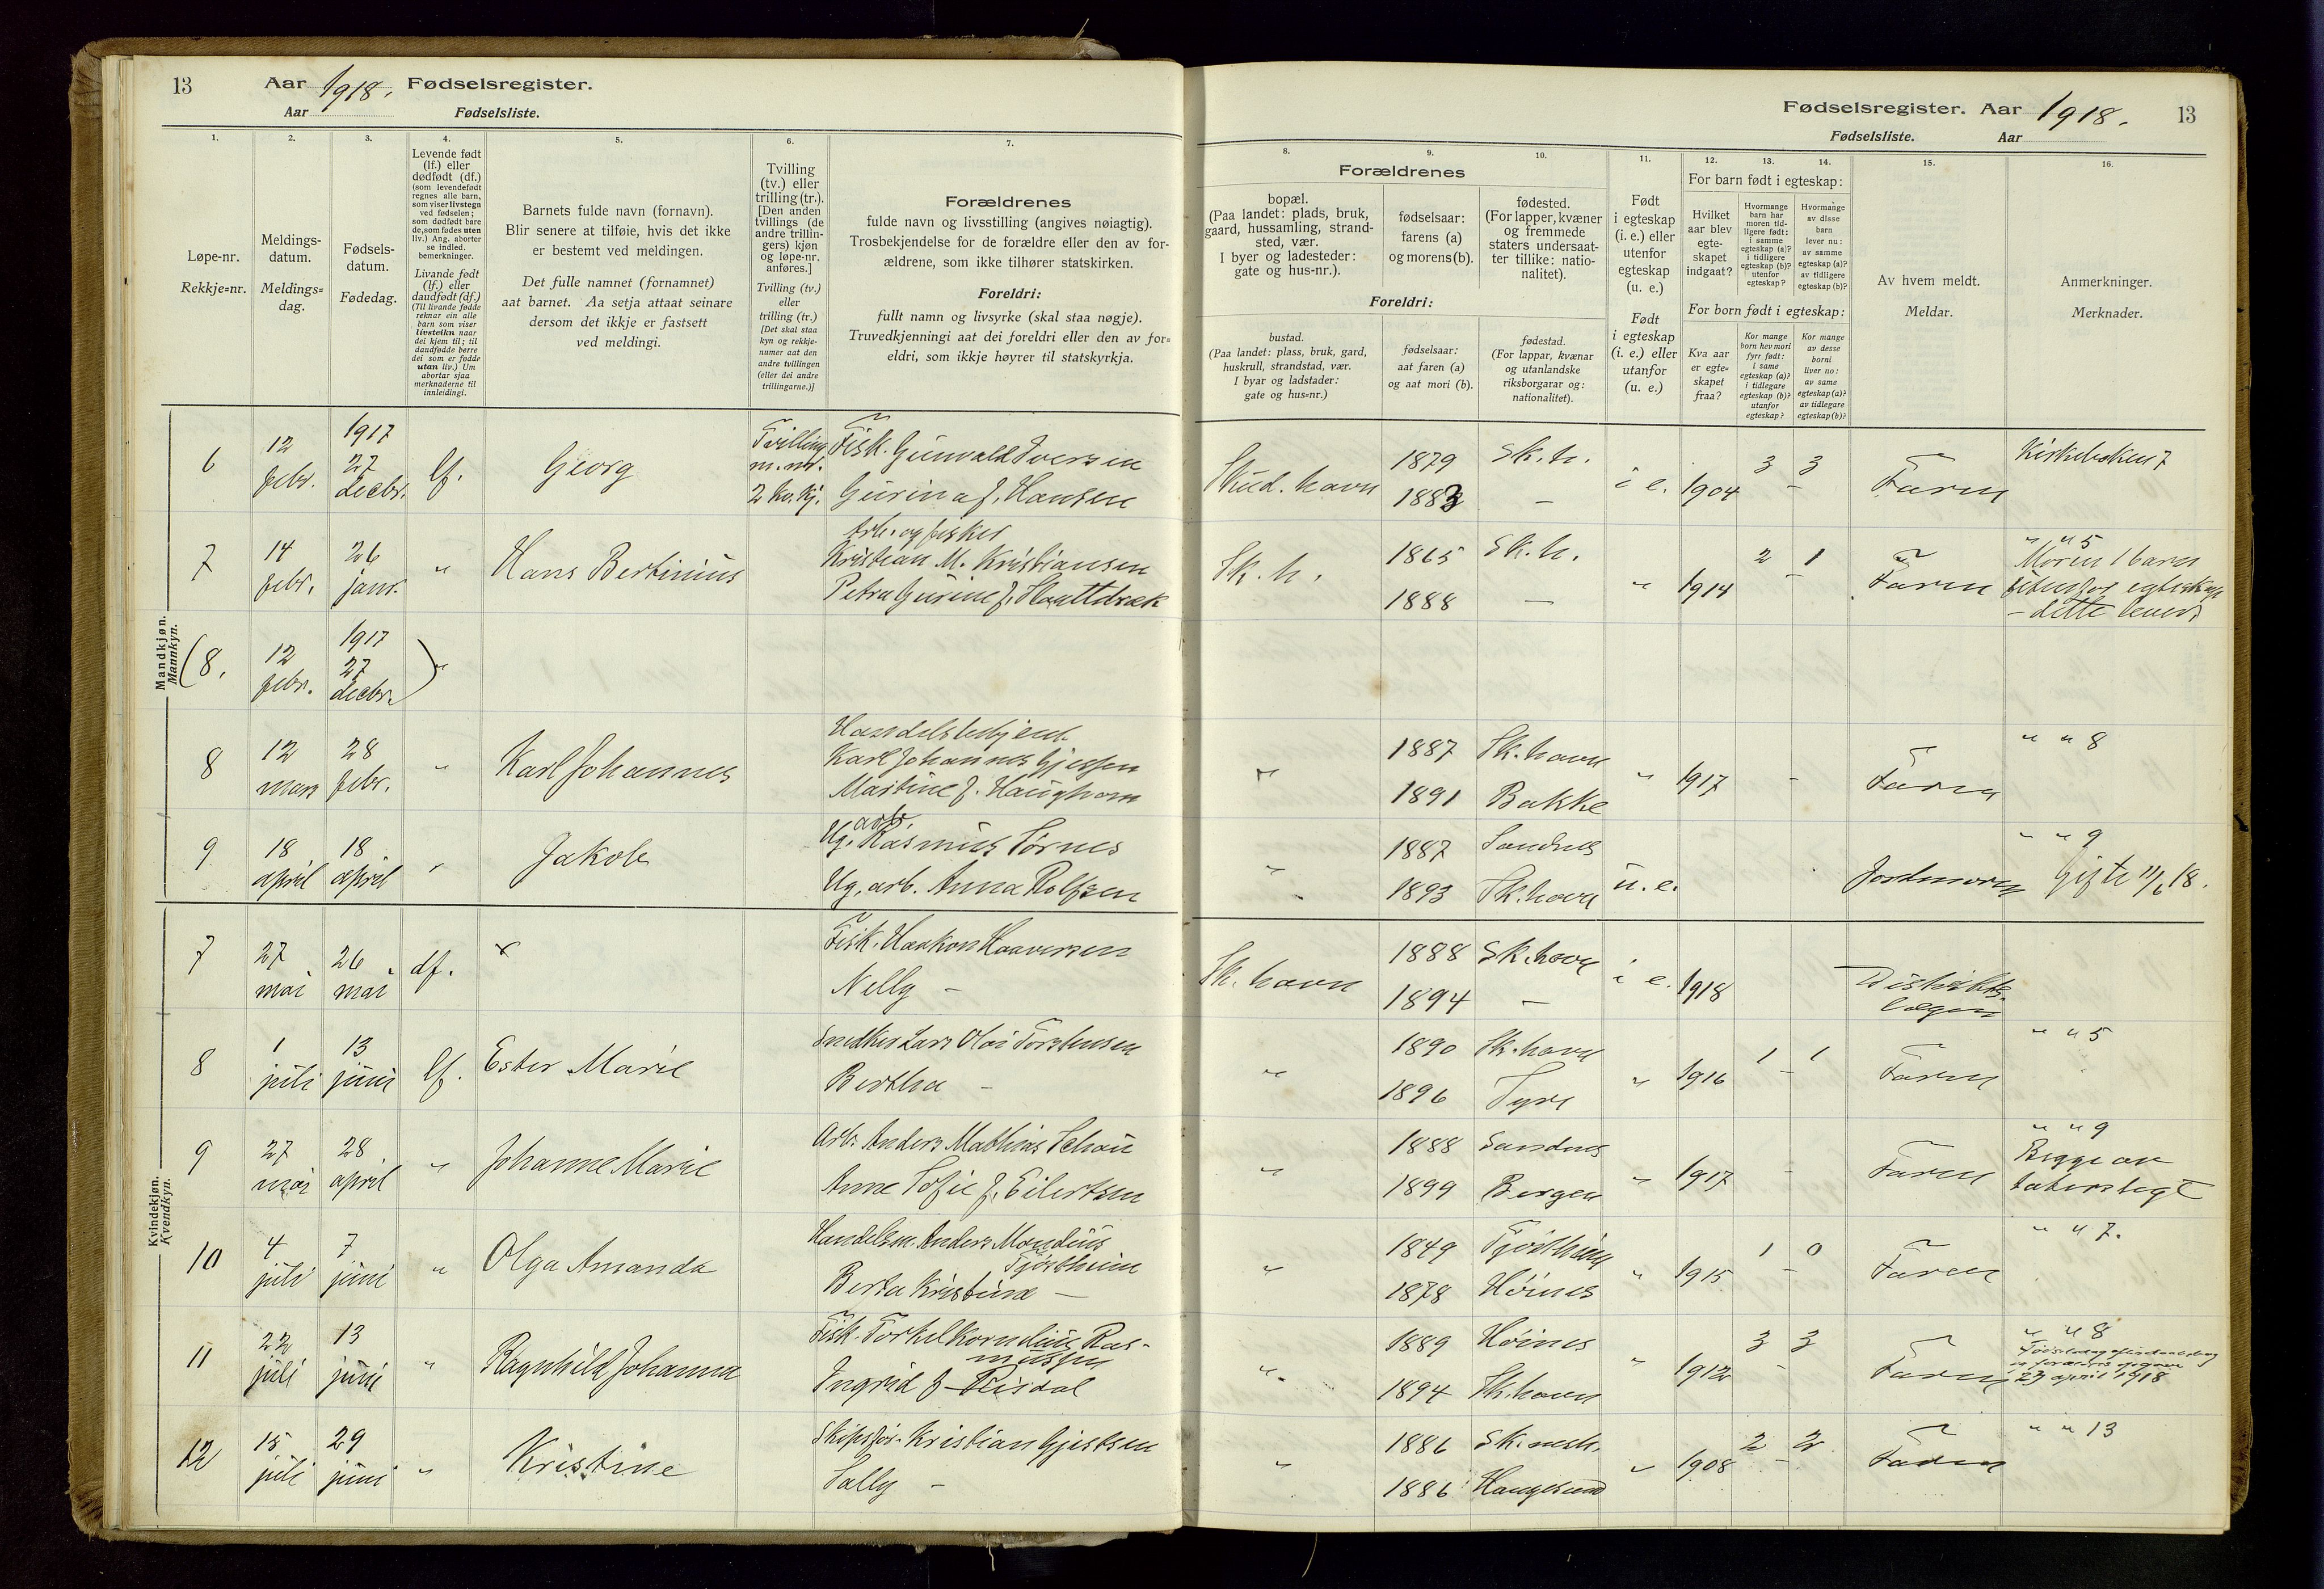 13 Aar 1918. Fødselsregister.
Aar Fødselsliste.
1. 2. 3. 4. 5. 6. 7.
Løpe-nr.
Rekkje=nr.
Meldings-
datum.
Meldings=
dag.
Fødsels-
datum.
Fødedag.
Levende født
(lf.) eller
dødfødt (df.)
(som levendefødt
regnes alle barn,
som viser livstegn
ved fødselen;
som dødfødt bare
de, som fødes uten
liv.) Ang. aborter
se indled.
bemerkninger.
Livande født
(lf.) eller
daudfødt (df.)
(Til livande fødde
reknar ein alle
barn som viser
livsteikn naar
dei kjem til; til
daudfødde berre
dei som er fødde
utan liv.) Um
abortar sjaa
merknaderne til
innleidingi.
Barnets fulde navn (fornavn).
Blir senere at tilføie, hvis det ikke
er bestemt ved meldingen.
Det fulle namnet (fornamnet)
aat barnet. Aa setja attaat seinare
dersom det ikkje er fastsett
ved meldingi.
Tvilling
(tv.) eller
trilling (tr.).
[Den anden
tvillings (de
andre trillin-
gers) kjøn
og løpe-nr.
anføres.]
Tvilling (tv.)
eller
trilling (tr.)
[Det skal staa
kyn og rekkje-
numer aat den
andre tvillingen
(eller dei andre
trillingarne.)]
Forældrenes
fulde navn og livsstilling (angives nøiagtig).
Trosbekjendelse for de forældre eller den av for-
ældrene, som ikke tilhører statskirken.
Foreldri:
fullt namn og livsyrke (skal staa nøgje).
Truvedkjenningi aat dei foreldri eller den av for=
eldri, som ikkje høyrer til statskyrkja.
Mandkjøn.
Mannkyn.
6 12 febr. 1917 27 decbr. lf. Georg Tvilling m. nr. 2 kv. kj. Fisk. Gunvald Iversen
Gurina f. Hansen
7 14 febr. 26 janr. " Hans Bertinius Arb. og fisker
Kristian M. Kristiansen
Petra Gurine f.
(8. 12 febr. 1917 27 decbr. ) "
8 12 mars 28 febr. " Karl Johannes Handelsbetjent
Karl Johannes
Martine f. Haughom
9 18 april 18 april " Jakob Ug. arb. Rasmus Tornes
Ug. arb. Anna Rolfsen
Kvindekjøn.
Kvendkyn.
7 27 mai 26 mai df. x Fisk. Haakon Haaversen
Nelly –
8 1 juli 13 juni lf. Ester Marie Snedker Lars Olai Torstensen
Bertha –
9 27 mai 28 april " Johanne Marie Arb. Anders Mathias
Anne Sofie f. Eilertsen
10 4 juli 7 juni " Olga Amanda Handelsm. Anders Mondius
Bertha Kristine –
11 22 juli 13 juni " Ragnhild Johanna Fisk. Torkel Kornelius Ras-
mussen
Ingrid f.
12 15 juli 29 juni " Kristine Skipsfør. Kristian Gjertsen
Sally –
Fødselsregister. Aar 1918. 13
Fødselsliste. Aar
8. 9. 10. 11. 12. 13. 14. 15. 16.
Forældrenes
bopæl.
(Paa landet: plads, bruk,
gaard, hussamling, strand-
sted, vær.
I byer og ladesteder:
gate og hus-nr.).
fødselsaar:
farens (a)
og morens (b).
fødested.
(For lapper, kvæner
og fremmede
staters undersaat-
ter tillike: natio-
nalitet).
Foreldri:
bustad.
(Paa landet: plass, bruk, gard,
huskrull, strandstad, vær.
I byar og ladstader:
gate og hus=nr.)
fødselsaar:
aat faren (a)
og aat mori (b).
fødestad.
(For lappar, kvænar
og utanlandske
riksborgarar og:
nationalitet).
Født
i egteskap
(i. e.) eller
utenfor
egteskap
(u. e.)
Født
i egteskap
(i. e.) eller
utanfor
(u. e.)
For barn født i egteskap:
Hvilket
aar blev
egte-
skapet
indgaat?
Hvormange
barn har
moren tid-
ligere født:
i samme
egteskap (a)?
i tidligere
egteskap (b)?
utenfor
egteskap?
Hvormange
av disse
barn
lever nu:
av samme
egteskap (a)?
av tidligere
egteskap (b)?
For born født i egteskap:
Kva aar
er egte=
skapet
fraa?
Kor mange
born hev mori
fyrr født:
i same
egteskap (a)?
i tidlegare
egteskap (b)?
utanfor
egteskap?
Kor mange
av desse
borni
liver no:
av same
egteskap (a)?
av tidlegare
egteskap (b)?
Av hvem meldt.
Meldar.
Anmerkninger.
Merknader.
Skud. havn 1879 Sk. h. i e. 1904 3 – 3 Faren Kirkeboken 7
1883 –
Sk. h. 1865 Sk. h. " 1914 2 – 1 Faren " " 5
1888 – Moren 1 barn
utenfor egteskap
– dette lever
" 1887 Sk. havn " 1917 – Faren " " 8
1891 Bakke
" 1887 Sandnes u. e. Jordmoren " " 9
1893 Sk. havn Gifte 11/6 18.
Sk. havn 1888 Sk. havn i e. 1918 Distrikts-
1894 – lægen
" 1890 Sk. havn " 1916 1 – 1 Faren " " 5
1896 
" 1888 Sandnes " 1917 – Faren " " 9
1899 Bergen Begge av
taterslegt
" 1849 " 1915 1 – 0 Faren " " 7.
1878 Høines
" 1889 Høines " 1912 3 – 3 Faren " " 8
1894 Sk. havn 23 april 1918
" 1886 " 1908 2 – 2 Faren " " 13
1886 Haugesund